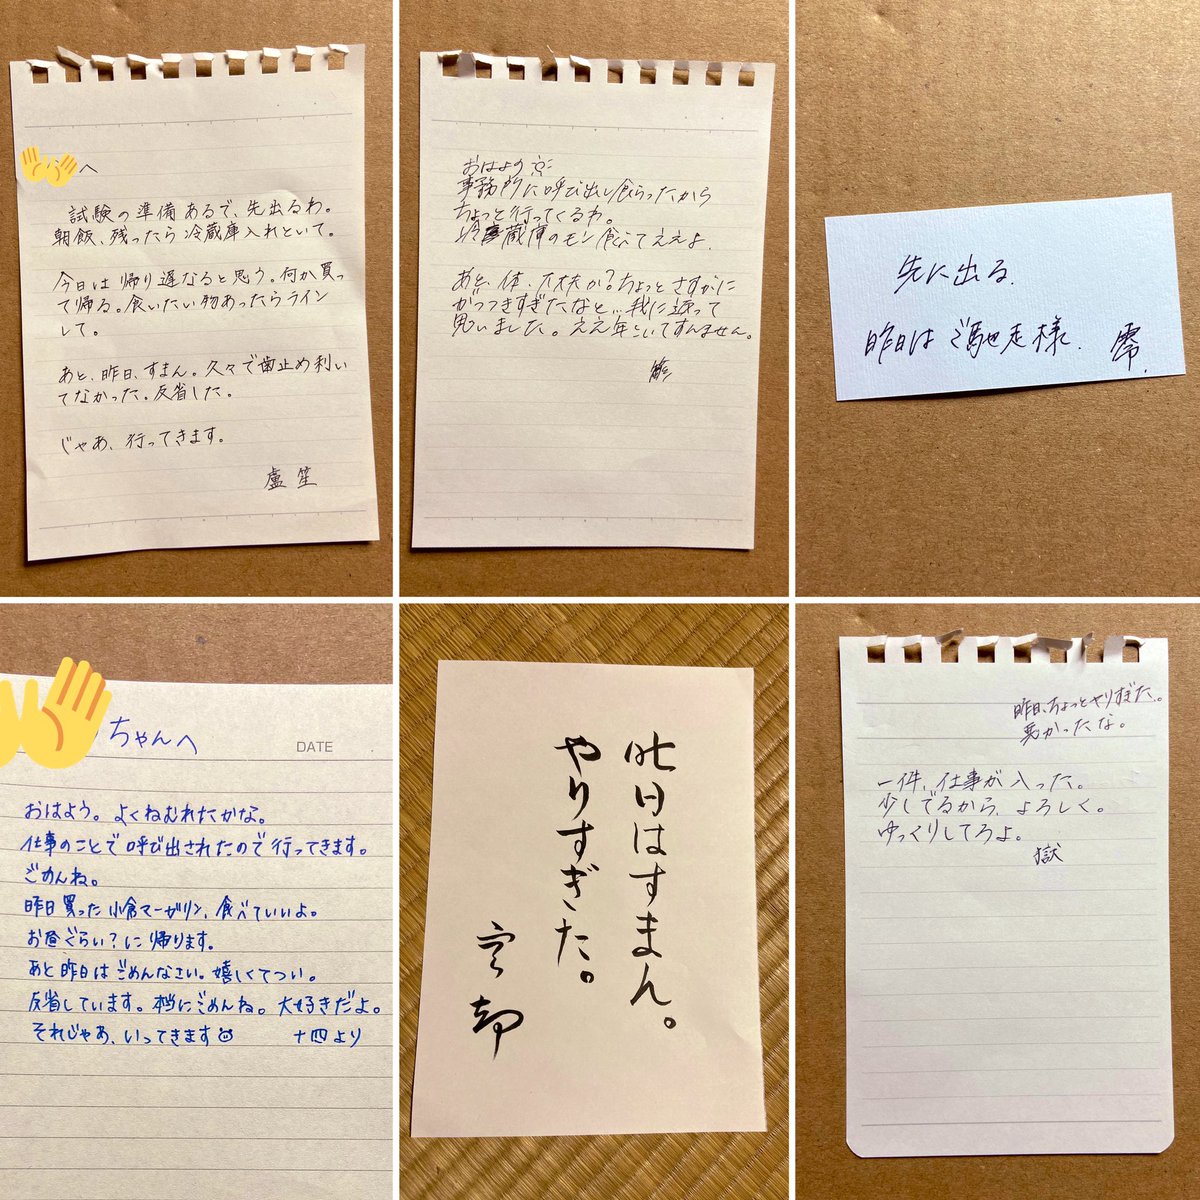 へ
試験の準備あるで、先出るわ。
朝飯、残ったら冷蔵庫入れといて。
今日は帰り遅なると思う。何か買っ
て帰る。食いたい物あったらライン
して。
あと、昨日、すまん。久々で歯止め利い
てなかった。反省した。
じゃあ、行ってきます。
盧笙
おはよ
事務所に呼び出し食らったから
ちょっと行ってくるわ。
冷蔵庫のモン食べてええよ。
あと、体、大丈夫か?ちょっとさすがに
がっつきすぎたなと…我に返って
思いました。ええ年こいてすんません。
簓
先に出る.
昨日はご馳走様. 零.
ちゃんへ
DATE
おはよう。よくねむれたかな。
仕事のことで呼び出されたので行ってきます。
ごめんね。
昨日買った小倉マーガリン、食べていいよ。
お昼ぐらい?に帰ります。
あと昨日はごめんなさい。嬉しくてつい。
反省しています。本当にごめんね。大好きだよ。
それじゃあ、いってきます 十四より
昨日はすまん。
やりすぎた。
空却
昨日、ちょっとやりすぎた。
悪かったな。
一件、仕事が入った。
少しでるから、よろしく。
ゆっくりしてろよ。
獄